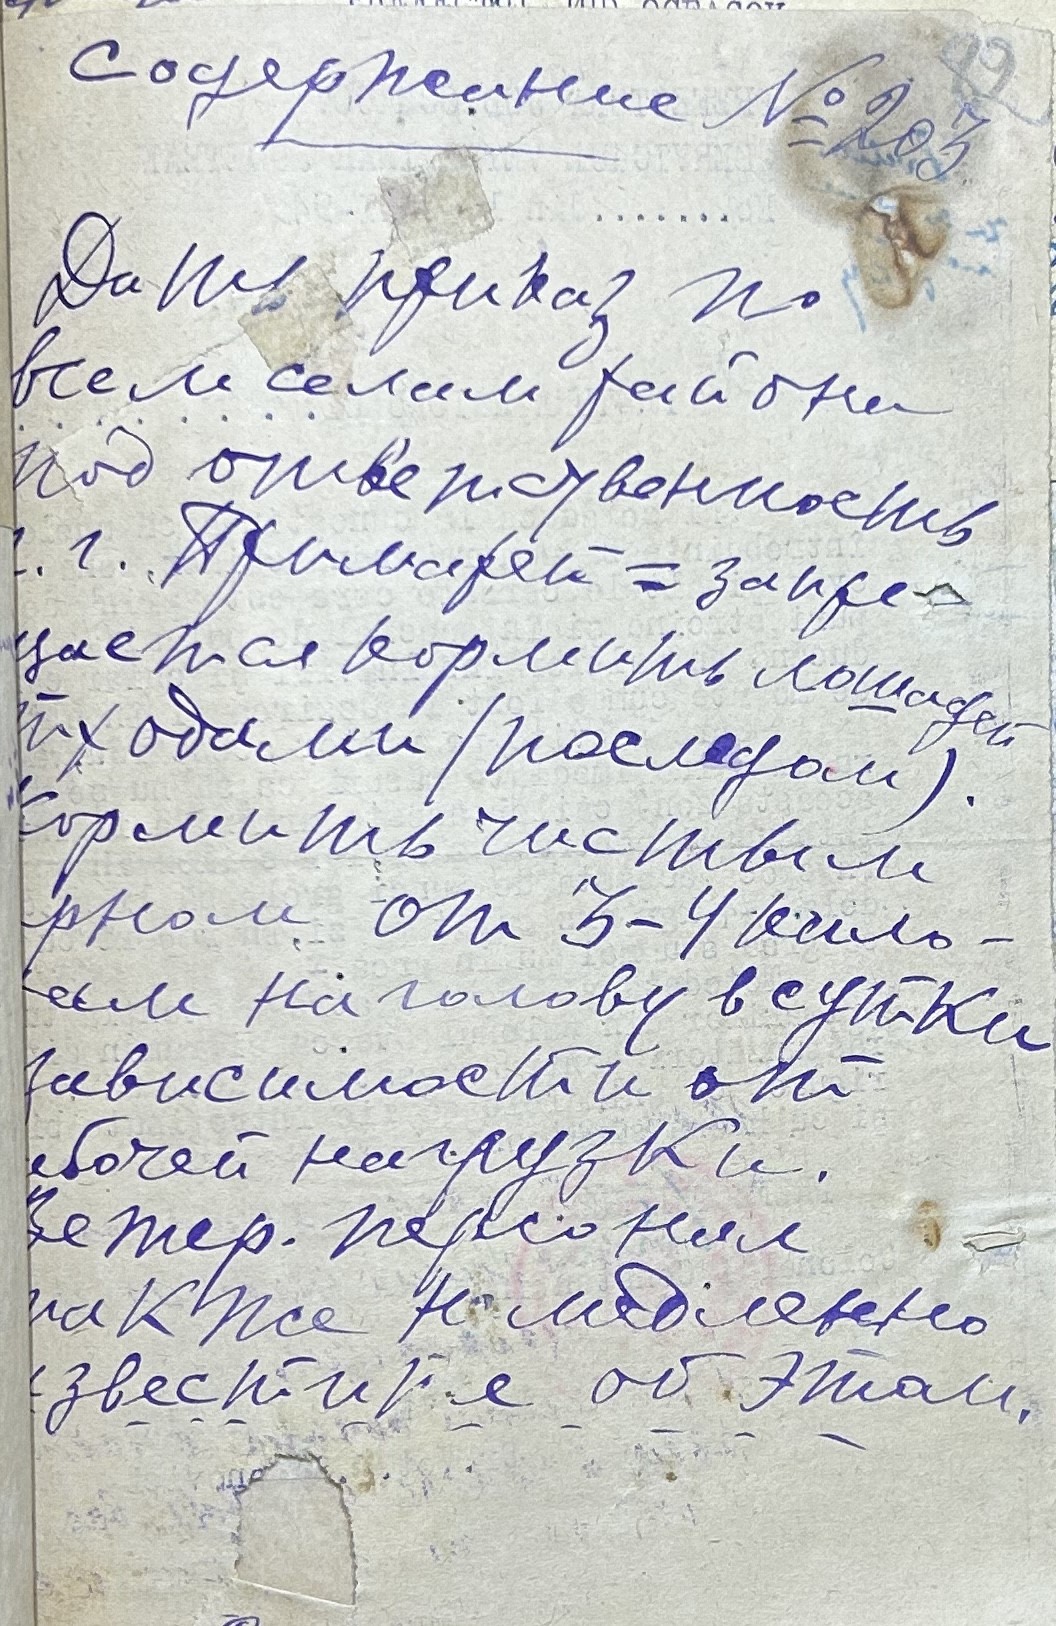 Содержание № 203
Дать приказ по
всем селам района
под ответственность
г. г. Примарей = запре-
щается кормить лошадей
тходами (последом).
Кормить чистым
рном от 3-4 кило-
ам на голову в сутки
зависимости от
бочей нагрузки.
Ветер. персонал
так же немедленно
звестите об этом.